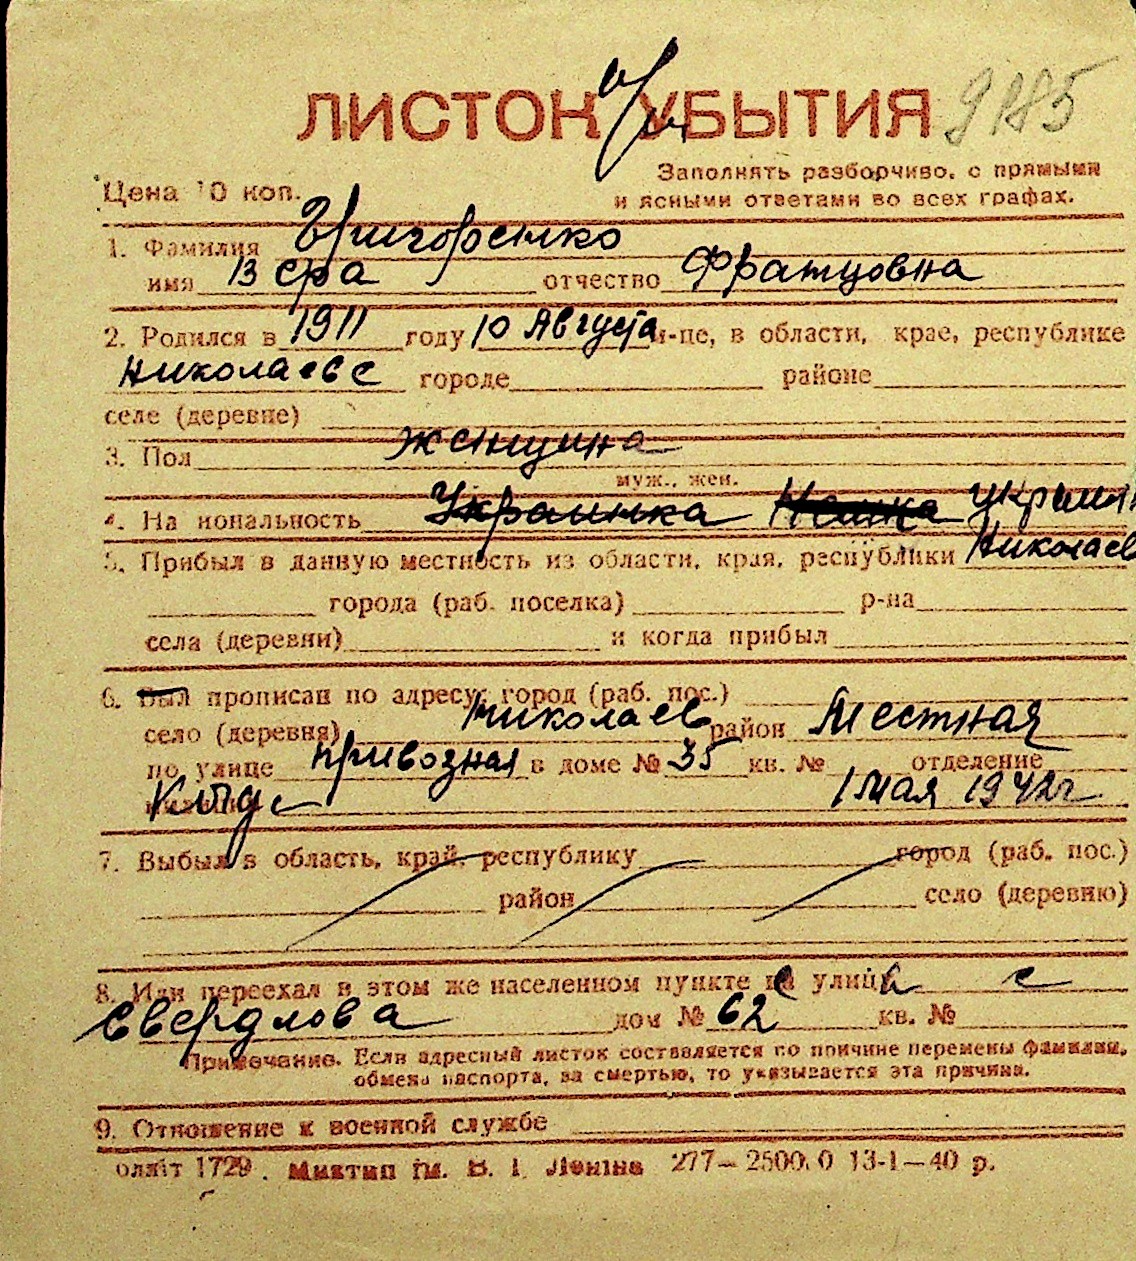 ЛИСТОК УБЫТИЯ 9185
Заполнять разборчиво, с прямыми
Цена 10 коп. и ясными ответами во всех графах.
1. Фамилия Григоренко
имя Вера отчество Францовна
2. Родился в 1911 году 10 Августа м-це, в области, крае, республике
Николаеве городе районе
селе (деревне)
3. Пол женщина
муж., жен.
4. Национальность Украинка Немка Украин
5. Прибыл в данную местность из области, края, республики Николаев
города (раб. поселка) р-на
села (деревни) и когда прибыл
6. Был прописан по адресу: город (раб. пос.)
село (деревня) Николаев район Местная
по улице Привозная в доме № 35 кв. № отделение
милиции 1 мая 1942 г
7. Выбыл в область, край, республику город (раб. пос.)
район село (деревню)
8. Или переехал в этом же населенном пункте на улицу с
Свердлова дом № 62 кв. №
Примечание. Если адресный листок составляется по причине перемены фамилии,
обмена паспорта, за смертью, то указывается эта причина.
9. Отношение к военной службе
1729. Миктип ім. В. І. Леніна 277—2500.0 13-1—40 р.